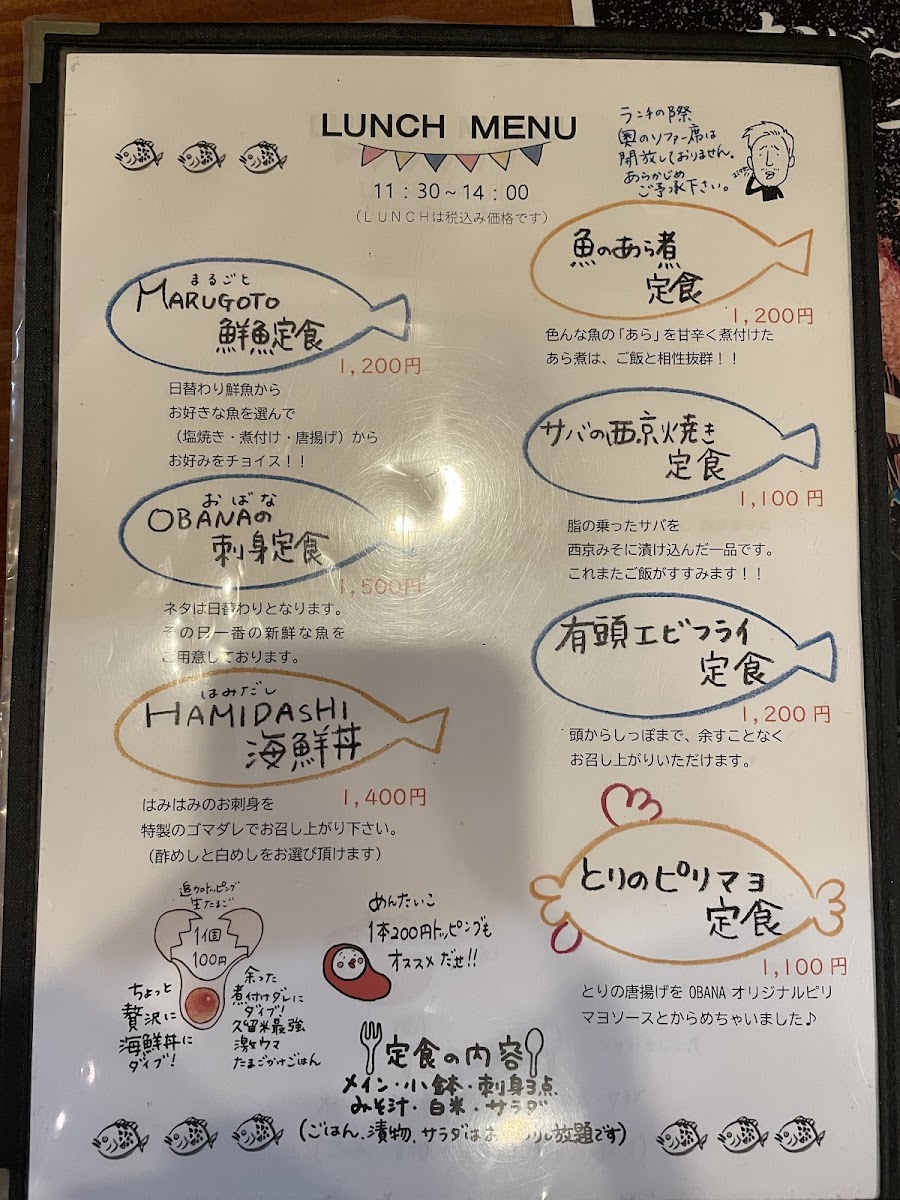 LUNCH MENU
11:30~14:00
(LUNCHは税込み価格です)
ランチの際
奥のソファー席は
開放しておりません。
あらかじめ
ご了承下さい。
まるごと
MARUGOTO
鮮魚定食
1,200円
日替わり鮮魚から
お好きな魚を選んで
(塩焼き・煮付け・唐揚げ)から
お好みをチョイス!!
おばな
OBANAの
刺身定食
1,500円
ネタは日替わりとなります。
その日一番の新鮮な魚を
ご用意しております。
はみだし
HAMIDASHI
海鮮丼
1,400円
はみはみのお刺身を
特製のゴマダレでお召し上がり下さい。
(酢めしと白めしをお選び頂けます)
魚のあら煮
定食
1,200円
色んな魚の「あら」を甘辛く煮付けた
あら煮は、ご飯と相性抜群!!
サバの西京焼き
定食
1,100円
脂の乗ったサバを
西京みそに漬け込んだ一品です。
これまたご飯がすすみます!!
有頭エビフライ
定食
1,200円
頭からしっぽまで、余すことなく
お召し上がりいただけます。
とりのピリマヨ
定食
1,100円
とりの唐揚げを OBANA オリジナルピリ
マヨソースとからめちゃいました♪
追加トッピング
生たまご
1個
100円
ちょっと
贅沢に
海鮮丼に
ダイブ!
余った
煮付けダレに
ダイブ!
久留米最強
激ウマ
たまごかけごはん
めんたいこ
1本200円トッピングも
オススメだぜ!!
定食の内容
メイン・小鉢・刺身3点
みそ汁・白米・サラダ
(ごはん、漬物、サラダはお放題です)